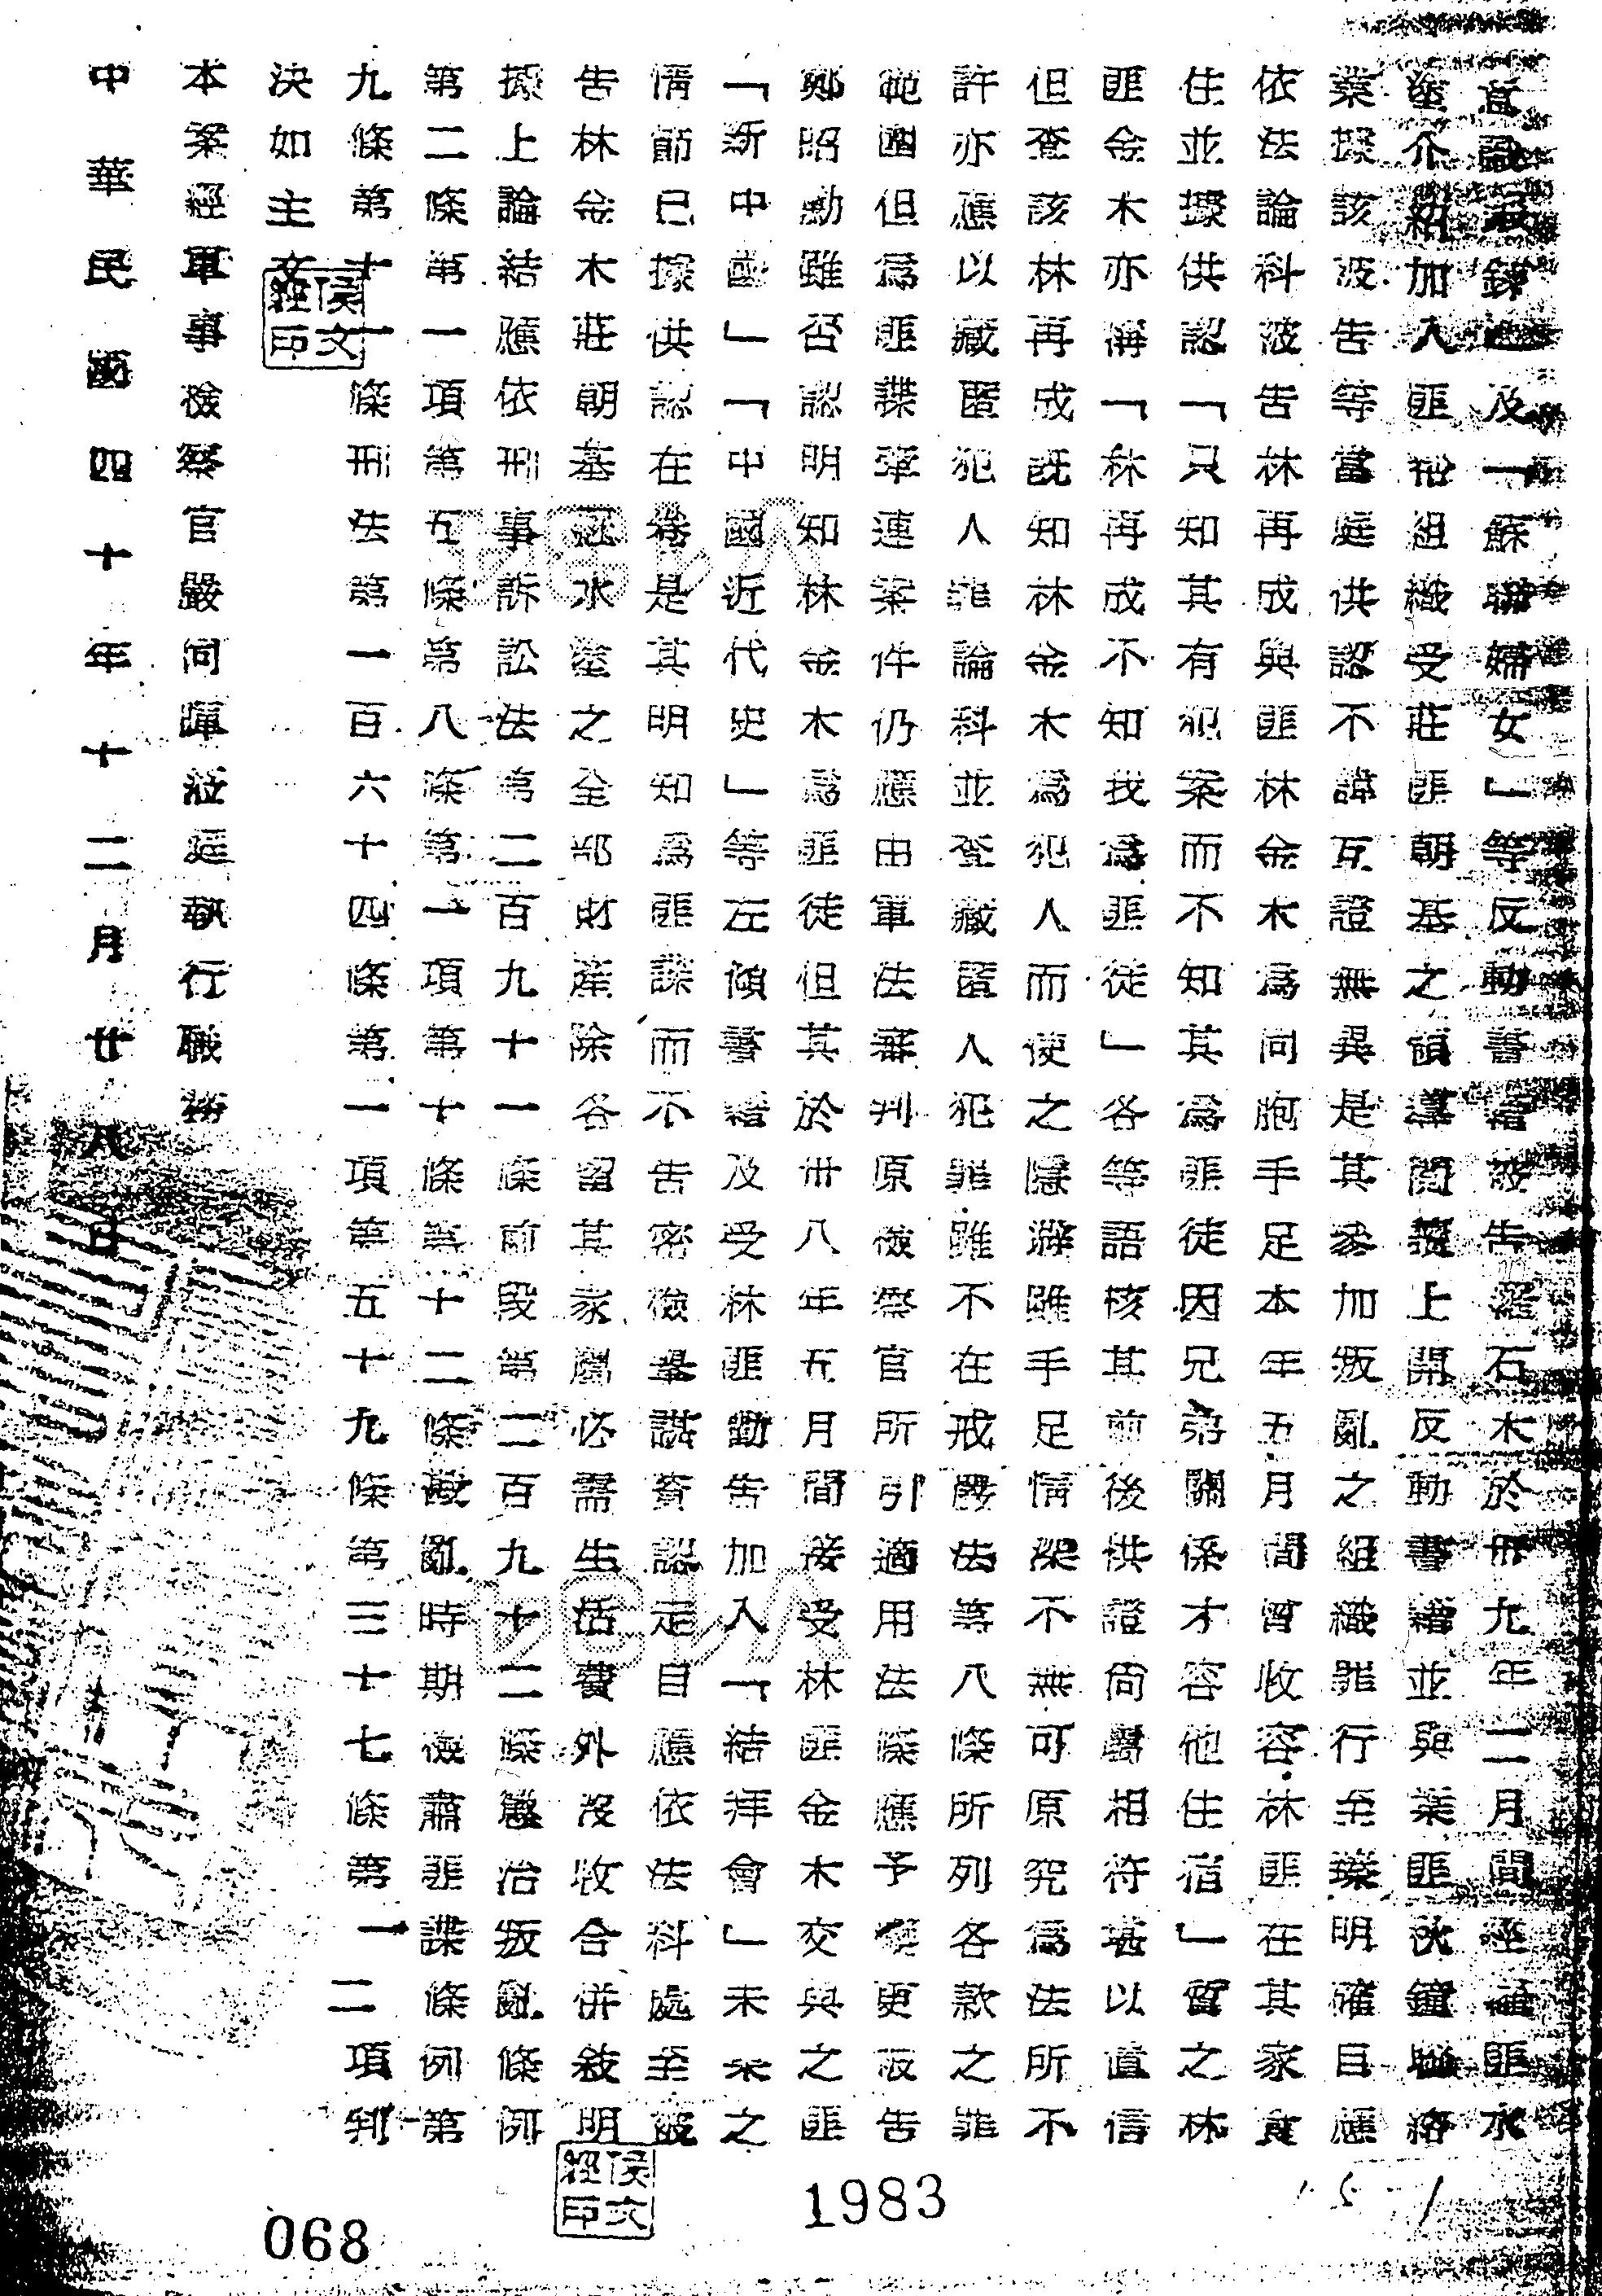 宣誤最錬」及「蘇聯婦女」等反動書籍被告羅石木於卅九年二月間經福匪水
塗介紹加入匪帮組織受莊匪朝基之領導閱讀上開反動書籍並與葉匪狄鐘聯絡
業據該被告等當庭供認不諱互證無異是其參加叛亂之組織罪行至臻明確自應
依法論科被告林再成與匪林金木為同胞手足本年五月間曾收容林匪在其家食
住並據供認「只知其有犯案而不知其為匪徒因兄弟關係才容他住宿」質之林
匪金木亦稱「林再成不知我為匪徒」各等語核其前後供證尚屬相符堪以置信
但查該林再成既知林金木為犯人而使之隱避雖手足情深不無可原究為法所不
許亦應以藏匿犯人罪論科並查藏匿人犯罪雖不在戒嚴法第八條所列各款之罪
範圍但為匪諜牽連案件仍應由軍法審判原檢察官所引適用法條應予變更被告
鄭昭勳雖否認明知林金木為匪徒但其於卅八年五月間接受林匪金木交與之匪
「新中國」「中國近代史」等左傾書籍及受林匪勸告加入「結拜會」未果之
情節已據供認在卷是其明知為匪諜而不告密檢舉謀資認定自應依法科處至被
告林金木莊朝基 水塗之全部財產除各留其家屬必需生活費外沒收合併敘明
據上論結應依刑事訴訟法第二百九十一條前段第二百九十二條懲治叛亂條例
第二條第一項第五條第八條第一項第十條第十二條戡亂時期檢肅匪諜條例第
九條第十一條刑法第一百六十四條第一項第五十九條第三十七條第一二項判
決如主文
本案經軍事檢察官嚴同暉蒞庭執行職務
中華民國四十年十二月廿八日
侯文經印
侯文經印
1983
068